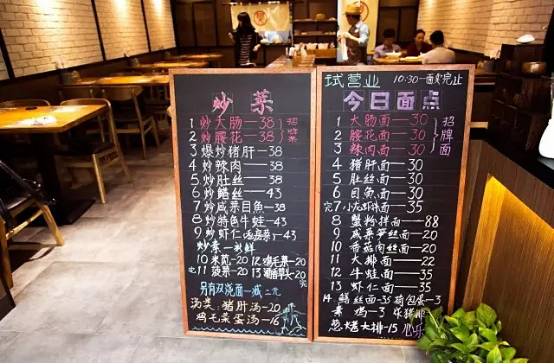 炒菜
1 炒大肠—38
2 炒腰花—38
招牌菜
3 爆炒猪肝—38
4 炒辣肉—38
5 炒肚丝—38
6 炒鳝丝—43
7 炒咸菜目鱼—38
8 炒特色牛蛙—43
9 炒虾仁—43
炒素—时鲜
10 米苋—20 12 鸡毛菜—20
11 菠菜—20 13
另有双浇面一减二元
汤类: 猪肝汤—20
鸡毛菜蛋汤—16
试营业 10:30—面卖完止
今日面点
1 大肠面—30
2 腰花面—30
3 辣肉面—30
招牌面
4 猪肝面—30
5 肚丝面—30
6 目鱼面—30
完 7 小龙虾面—35
8 蟹粉拌面—88
9 咸菜笋丝面—20
10 番茄肉丝面—20
11 大排面—22
12 牛蛙面—35
13 虾仁面—35
14 鳝丝面—35 荷包蛋—3
素鸡—3
葱烤大排—15